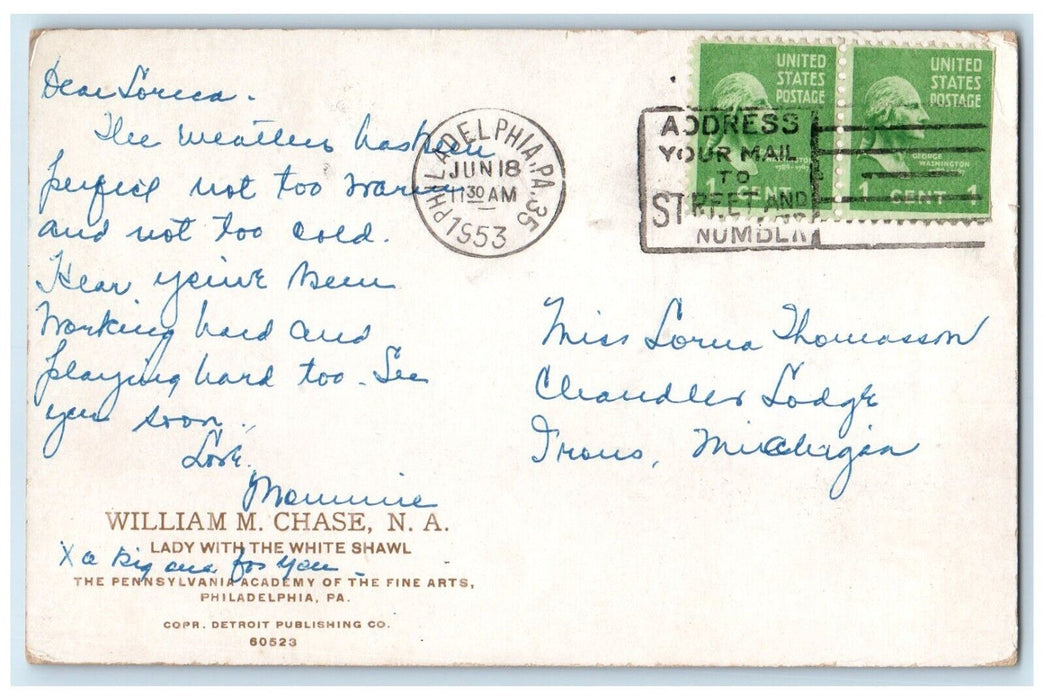 Dear Lorna -
The weather has been
perfect not too warm
and not too cold.
Hear you've been
working hard and
playing hard too - See
you soon,
Love,
Mommie
WILLIAM M. CHASE, N. A.
LADY WITH THE WHITE SHAWL
X a big one for you -
THE PENNSYLVANIA ACADEMY OF THE FINE ARTS,
PHILADELPHIA, PA.
COPR. DETROIT PUBLISHING CO.
60523
PHILADELPHIA, PA. 35
JUN 18
11 30 AM
1953
ADDRESS
YOUR MAIL
TO
STREET AND
NUMBER
UNITED
STATES
POSTAGE
WASHINGTON
1 CENT
UNITED
STATES
POSTAGE
GEORGE
WASHINGTON
1 CENT 1
Miss Lorna Thomasson
Chandler Lodge
Irons, Michigan